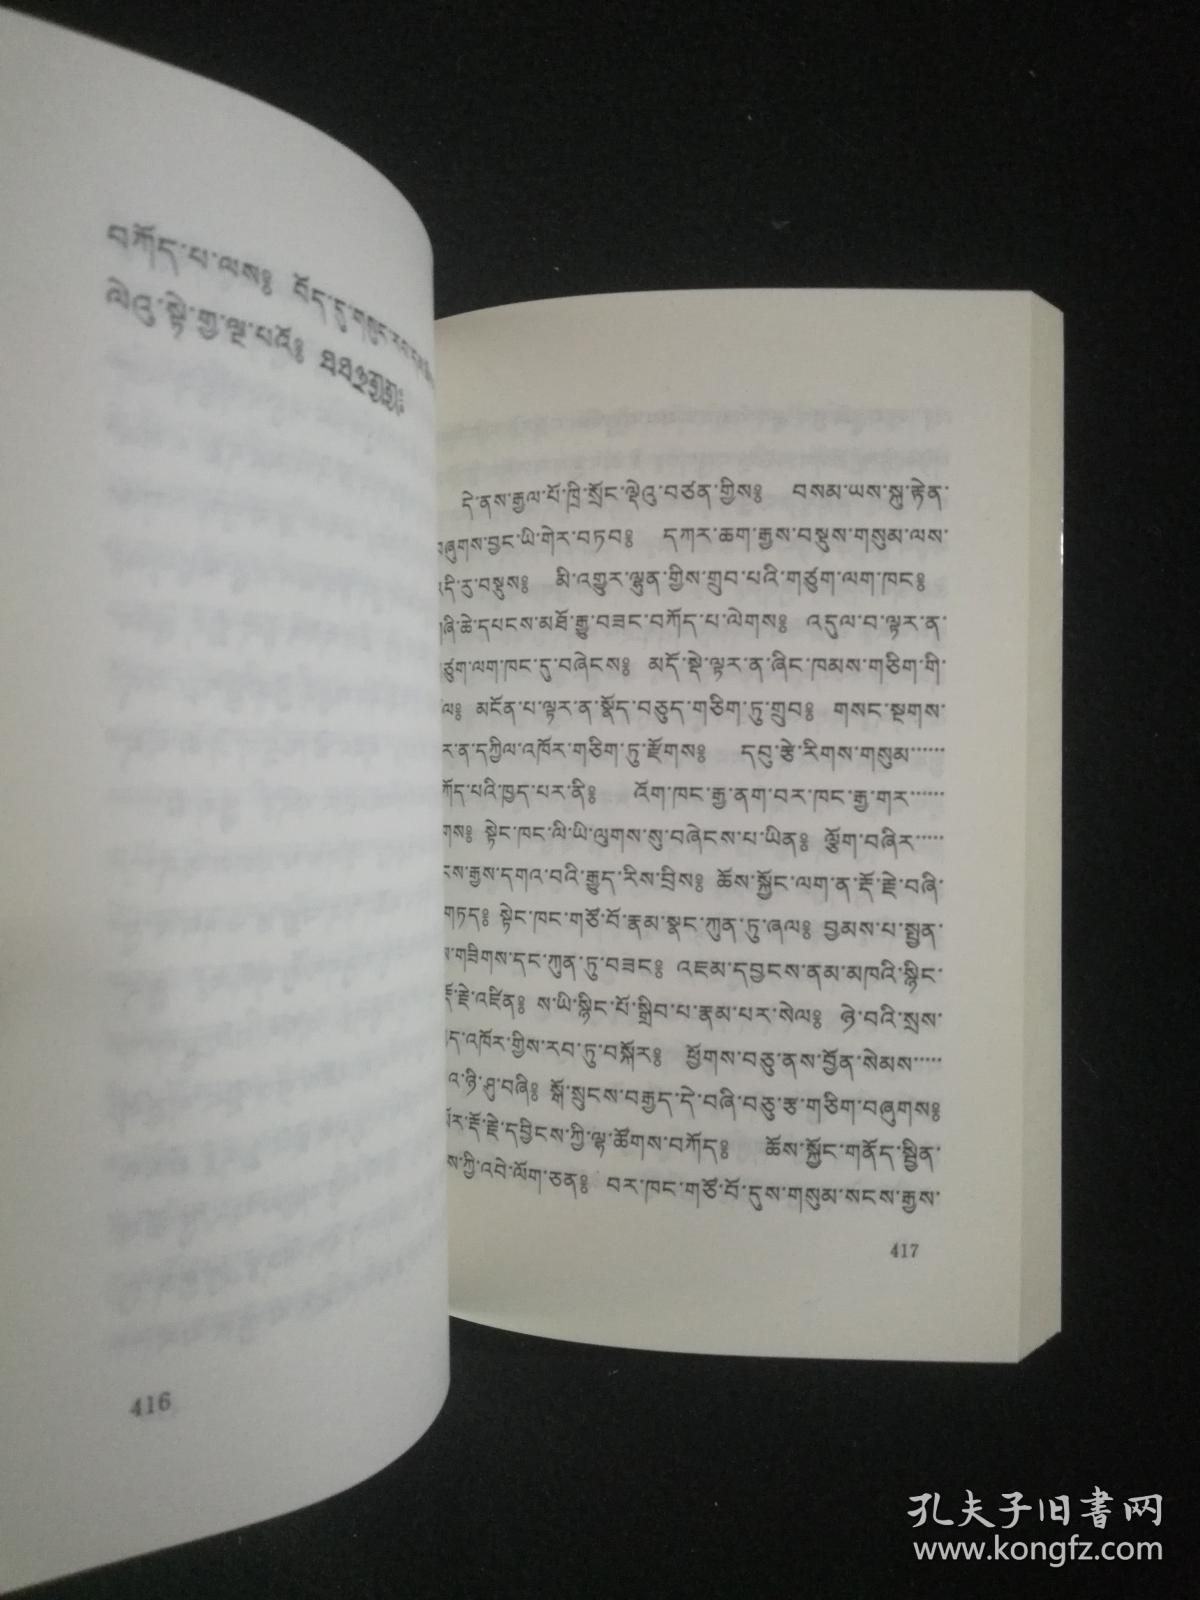 བཀོད་པ་ལས༔ བོད་དུ་གསུང་རབ་
ལེའུ་སྟེ་
416
དེ་ནས་རྒྱལ་པོ་ཁྲི་སྲོང་ལྡེའུ་བཙན་གྱིས༔ བསམ་ཡས་སྐུ་རྟེན་
བཞུགས་བྱང་ཡི་གེར་བཏབ༔ དཀར་ཆག་རྒྱས་བསྡུས་གསུམ་ལས་
འདི་རུ་བསྡུས༔ མི་འགྱུར་ལྷུན་གྱིས་གྲུབ་པའི་གཙུག་ལག་ཁང་༔
གཞི་ཆེ་དཔངས་མཐོ་རྒྱུ་བཟང་བཀོད་པ་ལེགས༔ འདུལ་བ་ལྟར་ན་
གཙུག་ལག་ཁང་དུ་བཞེངས༔ མདོ་སྡེ་ལྟར་ན་ཞིང་ཁམས་གཅིག་གི་
ལ༔ མངོན་པ་ལྟར་ན་སྣོད་བཅུད་གཅིག་ཏུ་གྲུབ༔ གསང་སྔགས་
ར་ན་དཀྱིལ་འཁོར་གཅིག་ཏུ་རྫོགས༔ དབུ་རྩེ་རིགས་གསུམ······
ཀོད་པའི་ཁྱད་པར་ནི༔ འོག་ཁང་རྒྱ་ནག་བར་ཁང་རྒྱ་གར······
གས༔ སྟེང་ཁང་ལི་ཡི་ལུགས་སུ་བཞེངས་པ་ཡིན༔ ལྕོག་བཞིར·····
ངས་རྒྱས་དགའ་བའི་རྒྱུད་རིས་བྲིས༔ ཆོས་སྐྱོང་ལག་ན་རྡོ་རྗེ་བཞི་
གཏད༔ སྟེང་ཁང་གཙོ་བོ་རྣམ་སྣང་ཀུན་ཏུ་ཞལ༔ བྱམས་པ་སྤྱན་
ས་གཟིགས་དང་ཀུན་ཏུ་བཟང་༔ འཇམ་དབྱངས་ནམ་མཁའི་སྙིང་
རྡོ་རྗེ་འཛིན༔ ས་ཡི་སྙིང་པོ་སྒྲིབ་པ་རྣམ་པར་སེལ༔ ཉེ་བའི་སྲས་
ད་འཁོར་གྱིས་རབ་ཏུ་བསྐོར༔ ཕྱོགས་བཅུ་ནས་བྱོན་སེམས·····
འ་ཉི་ཤུ་བཞི༔ སྒོ་སྲུངས་བརྒྱད་དེ་བཞི་བཅུ་རྩ་གཅིག་བཞུགས༔
ཁོར་རྡོ་རྗེ་དབྱིངས་ཀྱི་ལྷ་ཚོགས་བཀོད༔ ཆོས་སྐྱོང་གནོད་སྦྱིན་
ས་ཀྱི་འབེ་ལོག་ཅན༔ བར་ཁང་གཙོ་བོ་དུས་གསུམ་སངས་རྒྱས་
417
孔夫子旧书网
www.kongfz.com